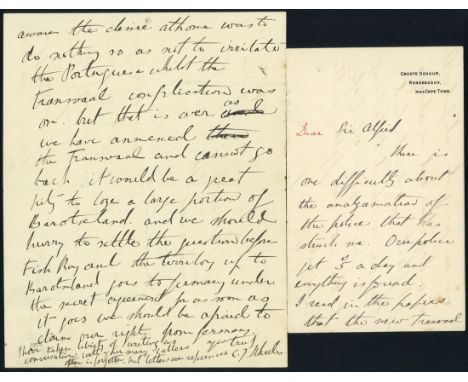 aware the desire at home was to
do nothing so as not to irritate
the Portuguese whilst the
Transvaal complication was
on. but that is over as
we have annexed
the Transvaal and cannot go
back it would be a great
pity to lose a large portion of
Barotseland and we should
hurry to settle the question before
Fish Bay and the territory up to
Barotseland goes to Germany under
the secret agreement for as soon as
it goes we should be afraid to
claim our right from Germany.
I have taken liberty of writing as
conversation with your many callers
often is forgotten but letters are references
yrs truly
C J Rhodes
GROOTE SCHUUR,
RONDEBOSCH,
NEAR CAPE TOWN.
Dear Sir Alfred
There is
one difficulty about
the amalgamation of
the police that has
struck me. Our police
get 5/ a day and
everything is found.
I read in the papers
that the new Transvaal